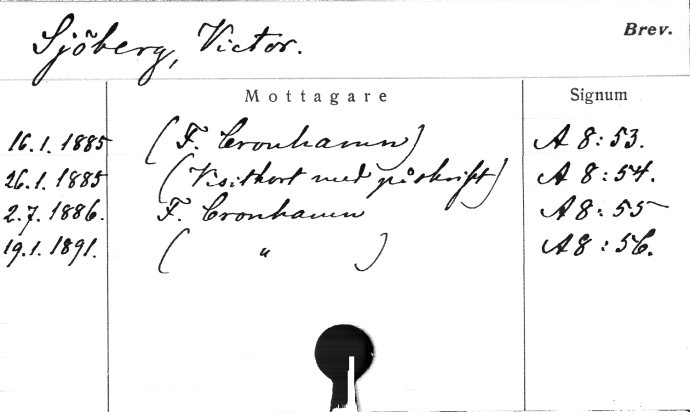 Sjöberg, Victor. Brev.
Mottagare Signum
16.1.1885 (F. Cronhamn) A 8:53.
26.1.1885 (Visitkort med påskrift) A 8:54.
2.7.1886. F. Cronhamn A 8:55
19.1.1891. ( " ) A 8:56.